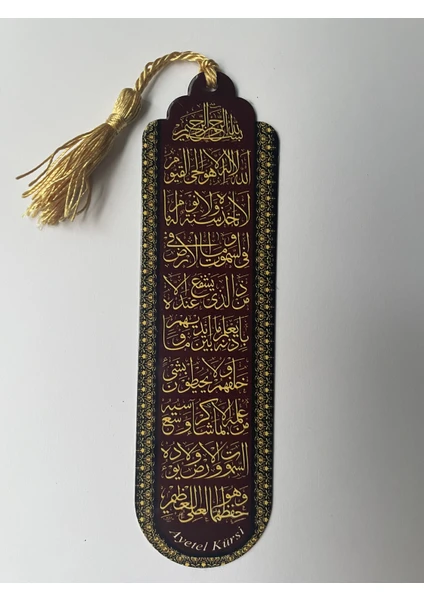 بسم الله الرحمن الرحيم
الله لا اله الا هو الحي القيوم
لا تاخذه سنة ولا نوم له ما
في السموات وما في الارض
من ذا الذي يشفع عنده الا
باذنه يعلم ما بين ايديهم وما
خلفهم ولا يحيطون بشئ
من علمه الا بما شاء وسع كرسيه
السموات والارض ولا يؤده
حفظهما وهو العلي العظيم
Ayetel Kürsi